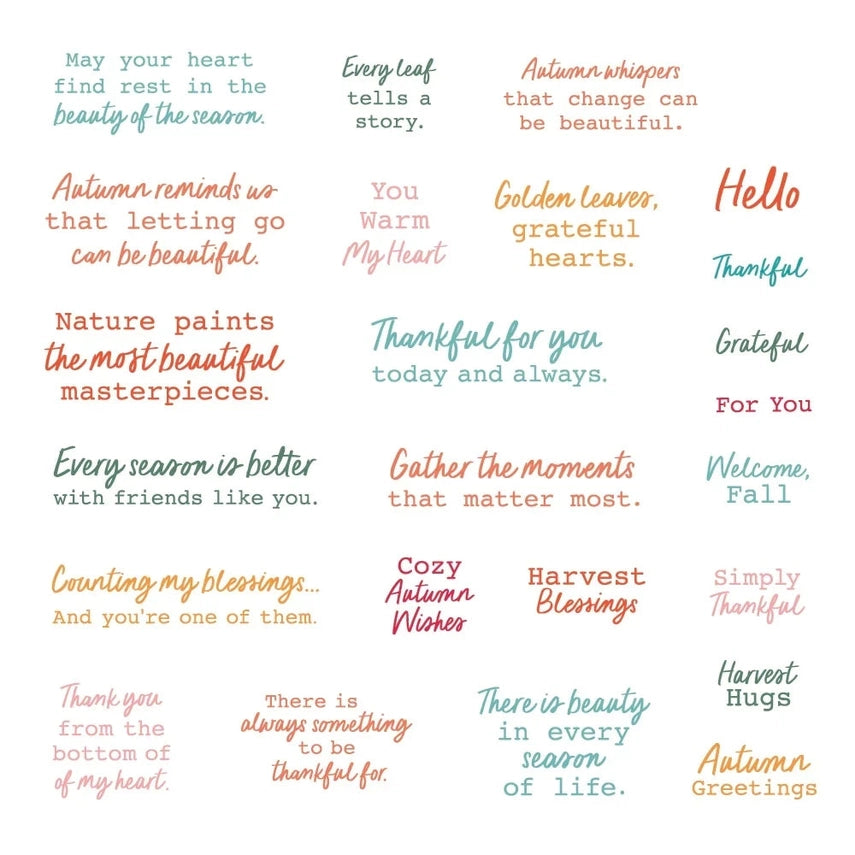 May your heart
find rest in the
beauty of the season.
Every leaf
tells a
story.
Autumn whispers
that change can
be beautiful.
Autumn reminds us
that letting go
can be beautiful.
You
Warm
My Heart
Golden leaves,
grateful
hearts.
Hello
Thankful
Nature paints
the most beautiful
masterpieces.
Thankful for you
today and always.
Grateful
For You
Every season is better
with friends like you.
Gather the moments
that matter most.
Welcome,
Fall
Counting my blessings...
And you're one of them.
Cozy
Autumn
Wishes
Harvest
Blessings
Simply
Thankful
Harvest
Hugs
Thank you
from the
bottom of
of my heart.
There is
always something
to be
thankful for.
There is beauty
in every
season
of life.
Autumn
Greetings